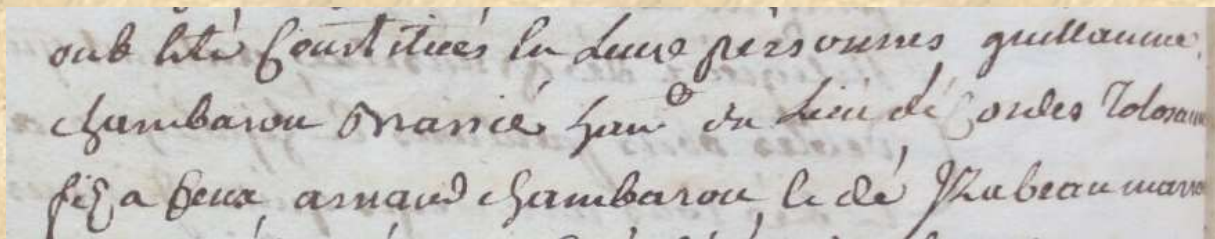 onb lité Constitués En Leurs pérsonnes guillaume
chambaron Brassié han du Lieu dé Cordes Tolosanes
filz a feux arnaud chambaron, le dé Izabeau marro